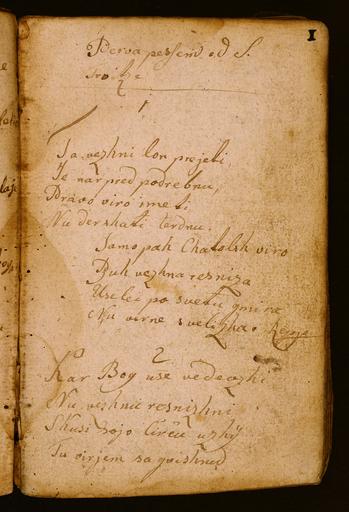 1
Perva pessem od S.
troize
1
Ta vezhni lon projeti
Je narpred podrebnu,
Pravo viro imeti
Nu dershati terdnu.
Samo pak Chatolsh viro
Duh vezhna resniza
Use lei po svetu
Nu virne svelizha. Repe
2
Kar Bog use vedeozhi
Nu vezhnu resnizhni
Skusi sojo Cirču uzhÿ
Tu virjem sagvishnu